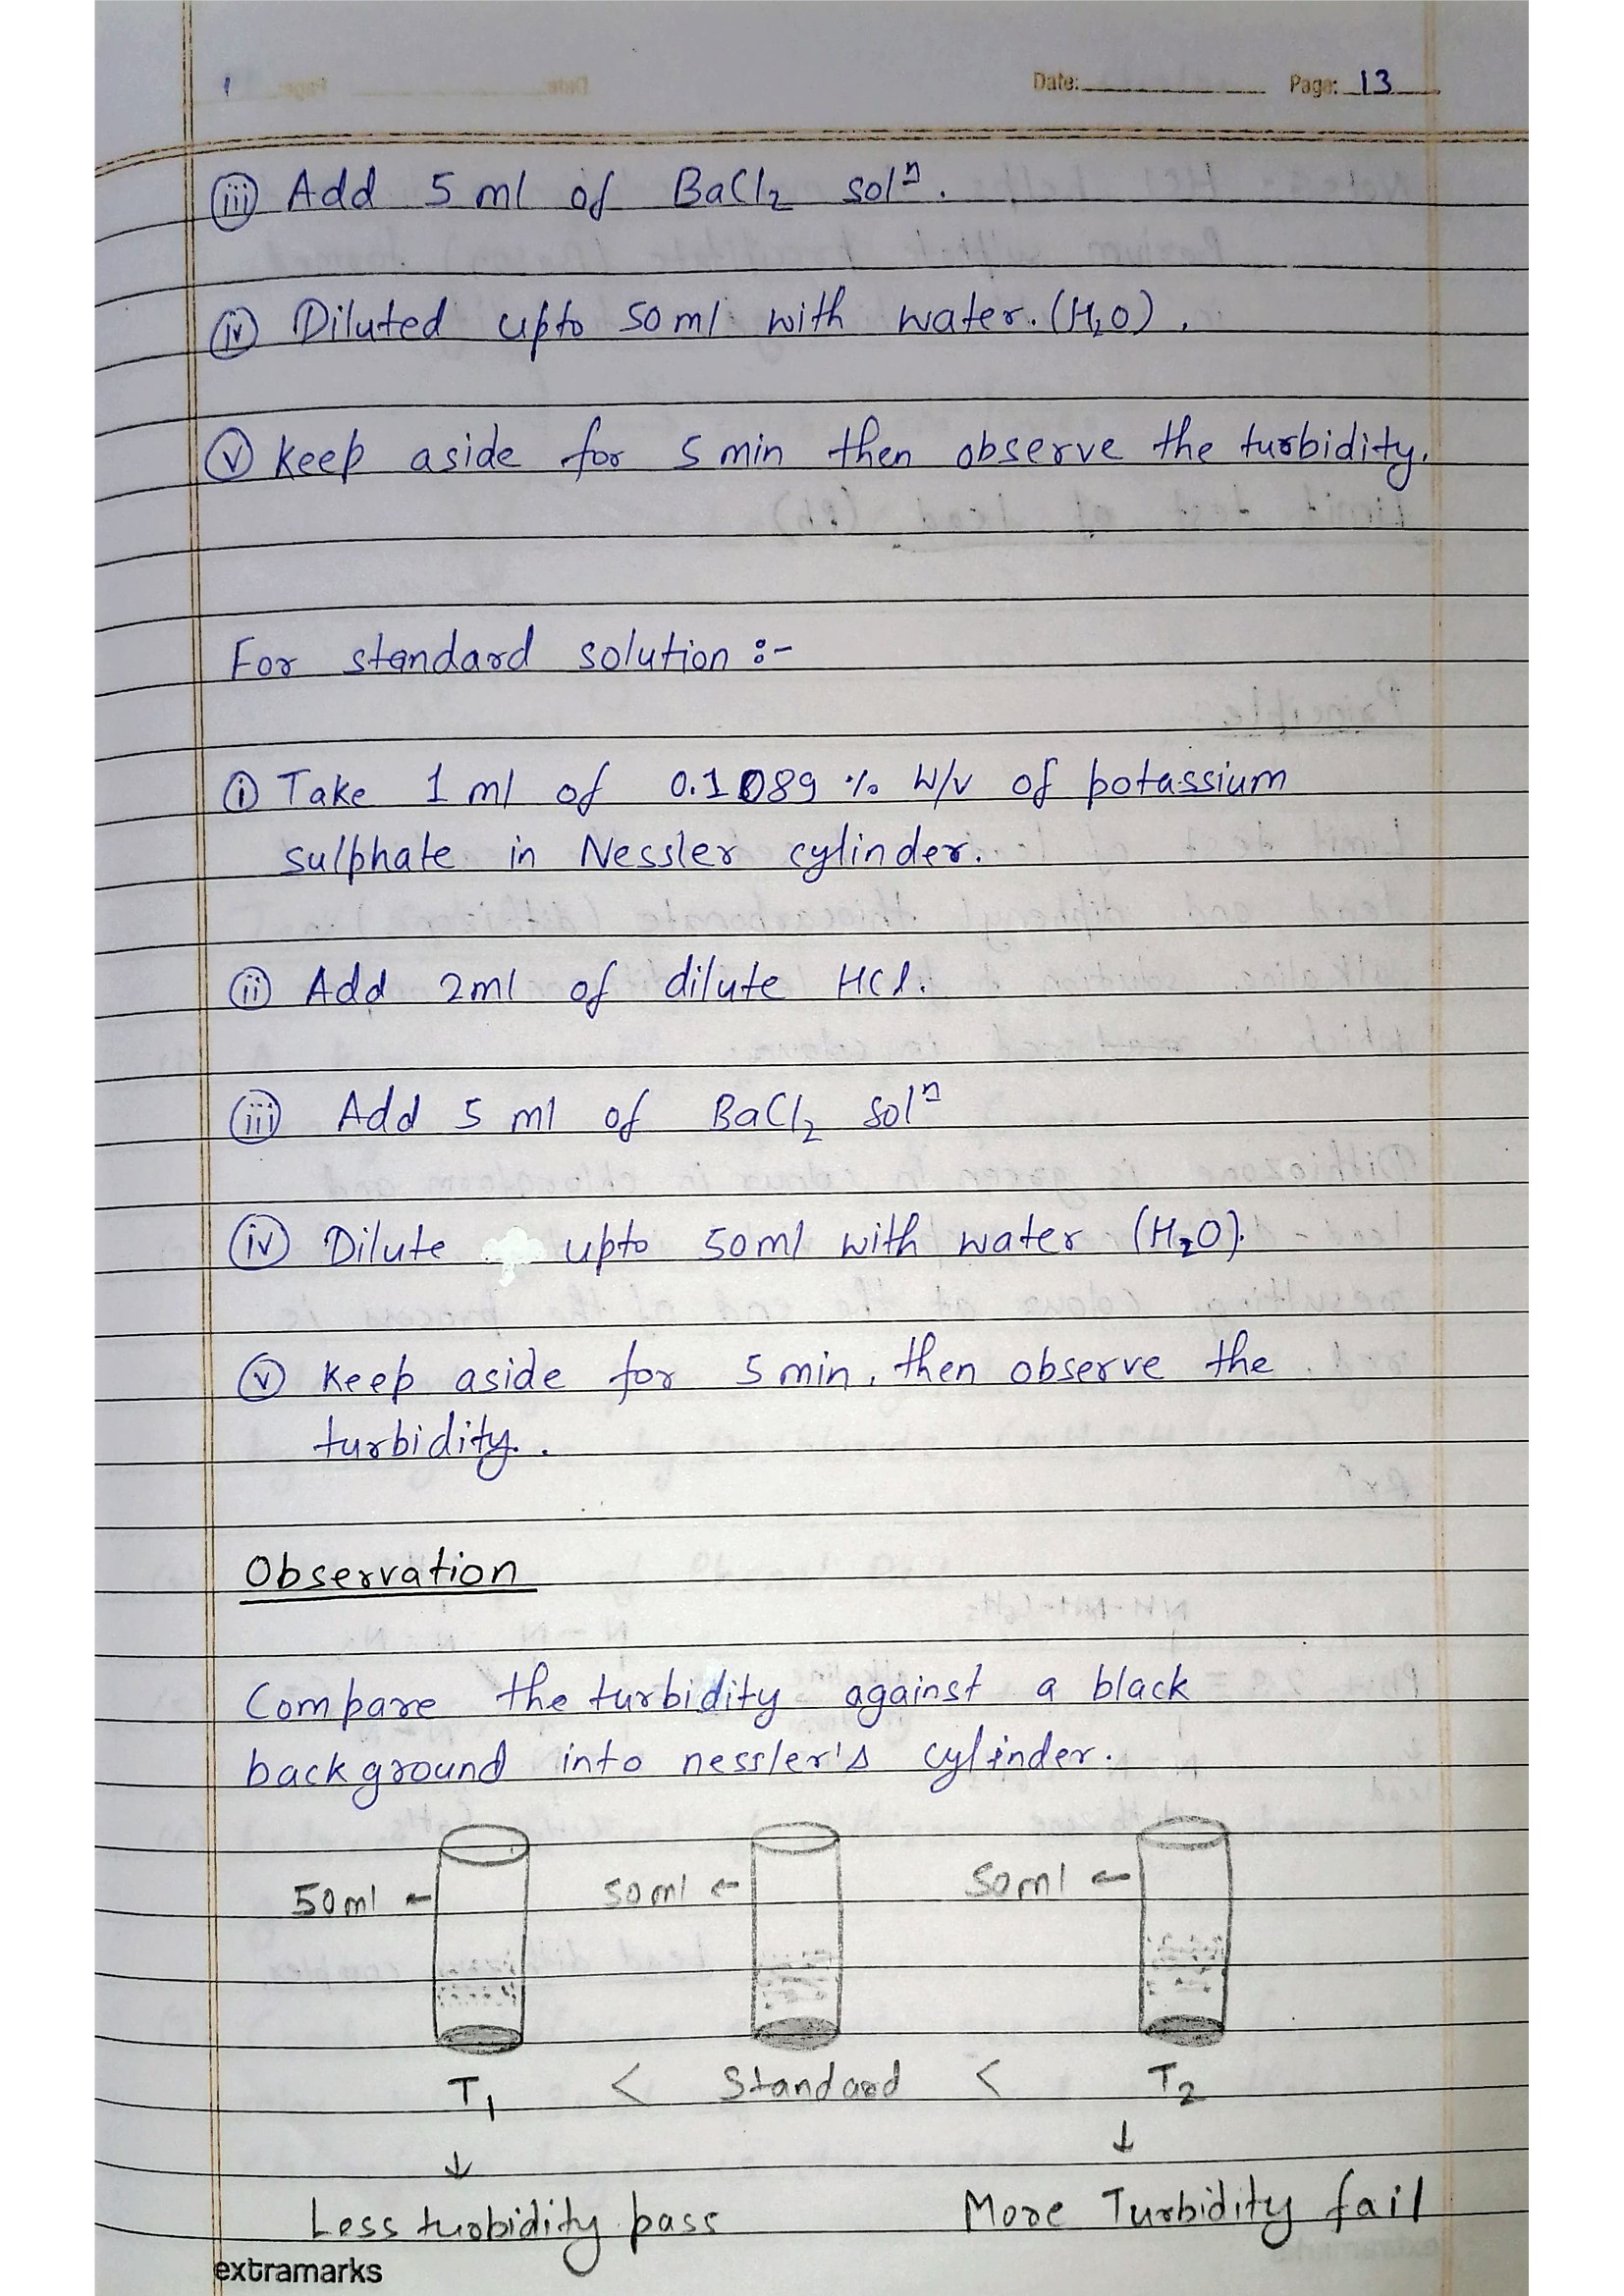 Date: Page: 13
(iii) Add 5 ml of BaCl₂ solⁿ.
(iv) Diluted upto 50 ml with water. (H₂O).
(v) Keep aside for 5 min then observe the turbidity.
For standard solution :-
(i) Take 1 ml of 0.1089 % W/V of potassium
sulphate in Nessler cylinder.
(ii) Add 2ml of dilute HCl.
(iii) Add 5 ml of BaCl₂ solⁿ
(iv) Dilute upto 50ml with water (H₂O).
(v) Keep aside for 5 min, then observe the
turbidity.
Observation
Compare the turbidity against a black
background into nessler's cylinder.
50ml ← 50ml ← 50ml ←
T₁ < Standard < T₂
↓ ↓
Less turbidity pass More Turbidity fail
extramarks